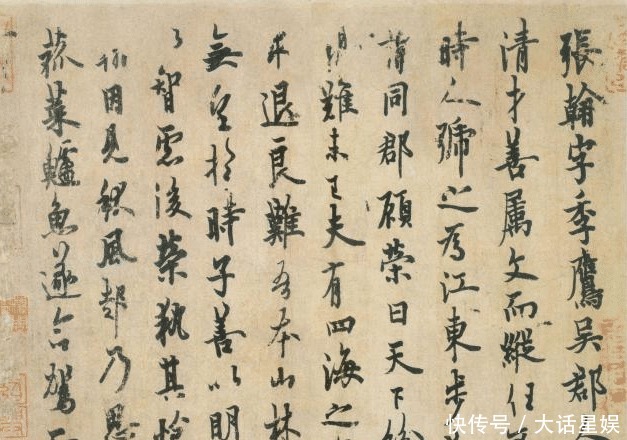 張翰字季鷹吳郡
清才善屬文而縱任
時人號之為江東步
謂同郡顧榮曰天下紛
難未已夫有四海之
求退良難吾本山林
無望於時子善以明
智慮後榮執其愴
因見秋風起乃思
菰菜鱸魚遂命駕而
快传号/大话星娱